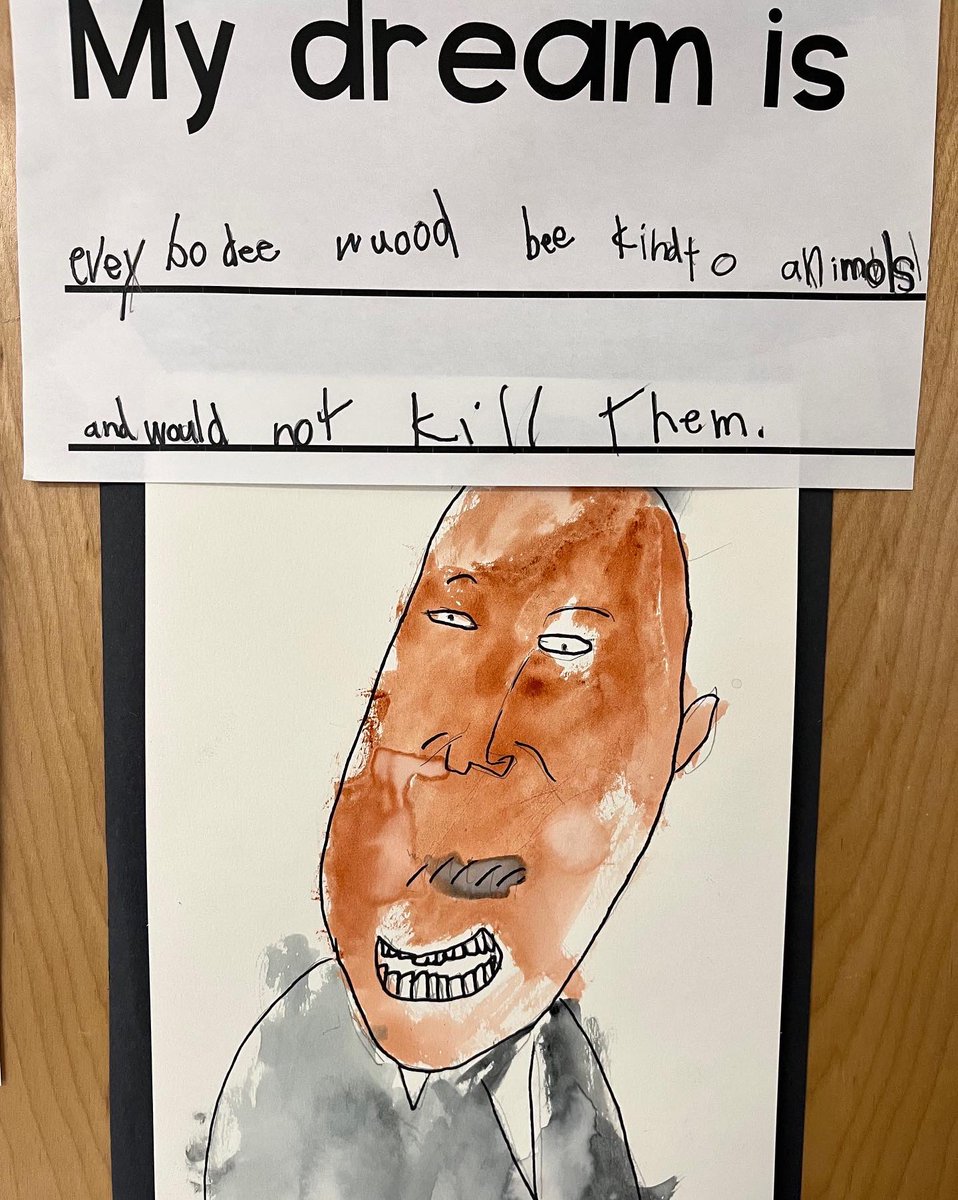 My dream is
evey bo dee wuood bee kindto animals
and would not kill them.